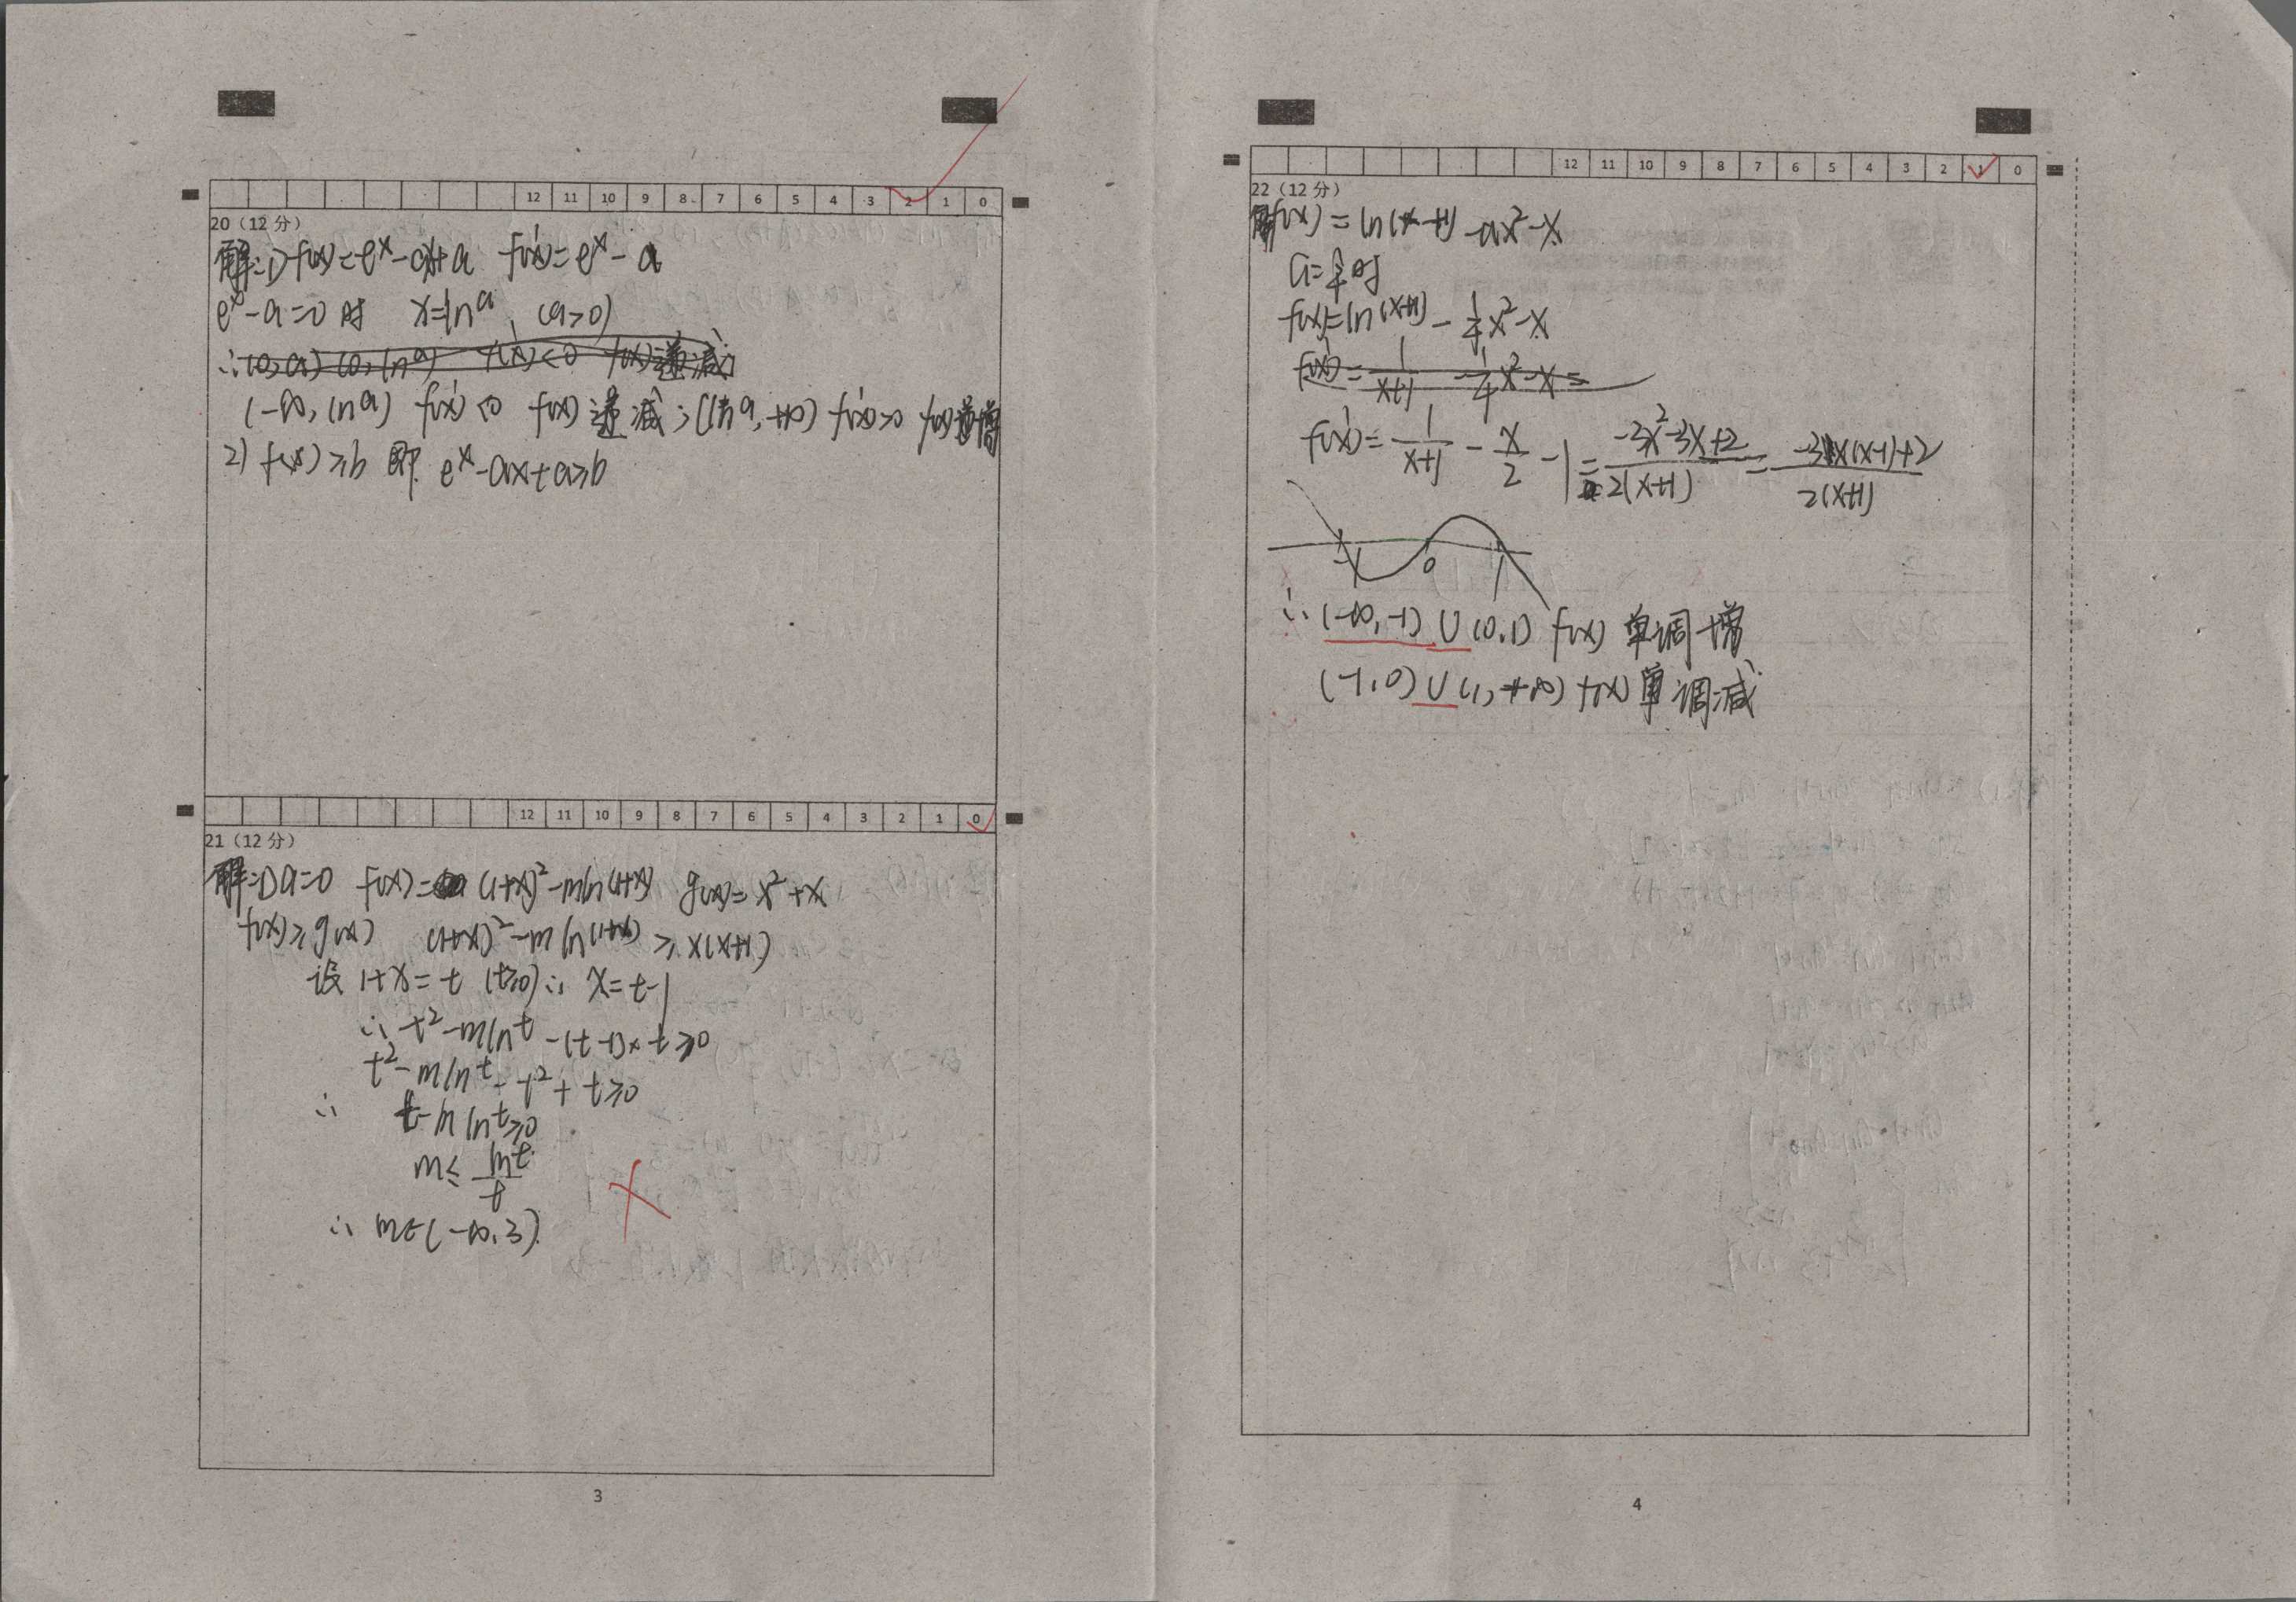 12 11 10 9 8 7 6 5 4 3 2 1 0
20（12 分）
解:1) f(x)=e^x-ax+a f'(x)=e^x-a
e^x-a=0时 x=ln^a (a>0)
(-∞, ln^a) f'(x)<0 f(x)递减;(ln^a,+∞) f'(x)>0 f(x)递增
2) f(x)≥b 即 e^x-ax+a≥b
12 11 10 9 8 7 6 5 4 3 2 1 0
21（12 分）
解:1) a=0 f(x)=(1+x)^2-mln(1+x) g(x)=x^2+x
f(x)≥g(x) (1+x)^2-mln^(1+x)≥x(x+1)
设 1+x=t (t≥0)∴ x=t-1
∴t^2-mln^t-(t-1)×t≥0
t^2-mln^t-t^2+t≥0
∴ t-mln^t≥0
m≤ln^t/t
∴ m∈(-∞,3).
3
12 11 10 9 8 7 6 5 4 3 2 1 0
22（12 分）
解f(x)=ln(x+1)-ax^2-x
f(x)=ln^(x+1)-1/4x^2-x
f'(x)=1/(x+1)-x/2-1=(-3x^2-3x+2)/2(x+1)=(-3x(x-1)+2)/2(x+1)
-1 0 1
∴(-∞,-1)∪(0,1) f(x) 单调增
(-1,0)∪(1,+∞) f(x)单调减
4